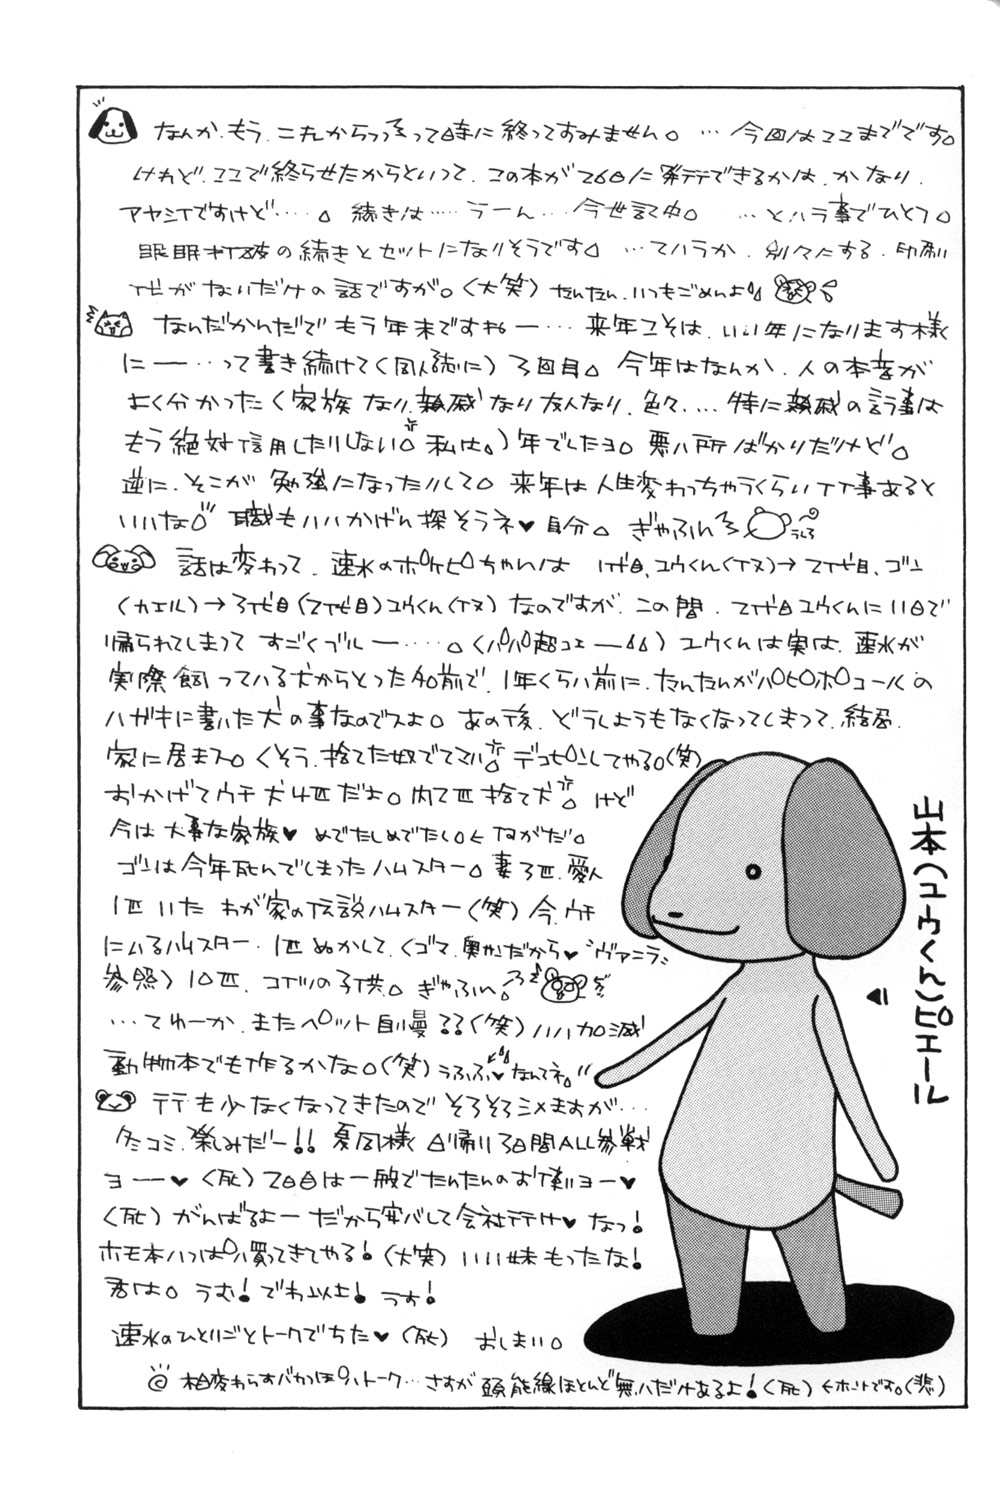 なんか、もう、これからっつーって時に終ってすみません。… 今回はここまでです。
けれど、ここで終らせたからといって、この本が26日に発行できるかは、かなり、
アヤシイですけど……。続きは……うーん…今世記中。…とハラ事でひとつ。
眠眠打破の続きとセットになりそうです。…てハラか、別々にする、印刷
代がないだけの話ですが。(大笑) たんたん、いつもごめんよ
なんだかんだで もう年末ですねー… 来年こそは、いい年になります様
にー…って書き続けて(同人誌に)3回目。今年はなんか、人の本音が
よく分かった(家族なり、親戚なり友人なり、色々…特に親戚の言う事は
もう絶対信用したりしない。私は。)年でしたヨ。悪い所ばかりだけど。
逆に、そこが 勉強になったりして。来年は人生変わっちゃうくらいイイ事あると
いいな。職もいいかげん探そうネ♥自分。ぎゃふん
話は変わって、速水のポケピちゃんは 1代目、ユウくん(イヌ)→2代目、ゴン
(カエル)→3代目(2代目)ユウくん(イヌ)なのですが、この間、2代目ユウくんに11日で
帰られてしまって すごくブルー……。(パパ超コエー) ユウくんは実は、速水が
実際飼っている犬からとった名前で、1年くらい前に、たんたんがパピポコールの
ハガキに書いた犬の事なのでスよ。あの後、どうしようもなくなってしまって、結局、
家に居まス。くそう、捨てた奴でてこい。デコピンしてやる。(笑)
おかげでウチ犬4匹だよ。内2匹捨て犬。けど
今は大事な家族♥ めでたしめでたし。←ながだ。
ゴンは今年死んでしまったハムスター。妻3匹、愛人
1匹いた わが家の伝説ハムスター(笑) 今、ウチ
にいるハムスター、1匹ぬかして、(ゴマ、奥がだから♥ヴァニラ
参照)10匹、コイツの子供。ぎゃふん。
…てゆーか、またペット自慢??(笑) いい加減
動物本でも作るかな。(笑) うふふ♥なんてネ。
行も少なくなってきたので そろそろシメますが…
冬コミ、楽しみだー!! 夏同様 日帰り3日間ALL参戦
ヨー♥(死) 2日目は一般でたんたんのお供ヨー♥
(死) がんばるよー だから安心して会社行け♥ なっ!
ホモ本いっぱい買ってきてやる!(大笑) いい妹もったな!
君は。うむ! でわ以上! うす!
速水のひとりごとトークでちた♥(死) おしまい。
◎相変わらずバカっぽいトーク…さすが 頭脳線ほとんど無いだけあるよ!(死) ←ホントです。(悲)
山本(ユウくん)ピエール